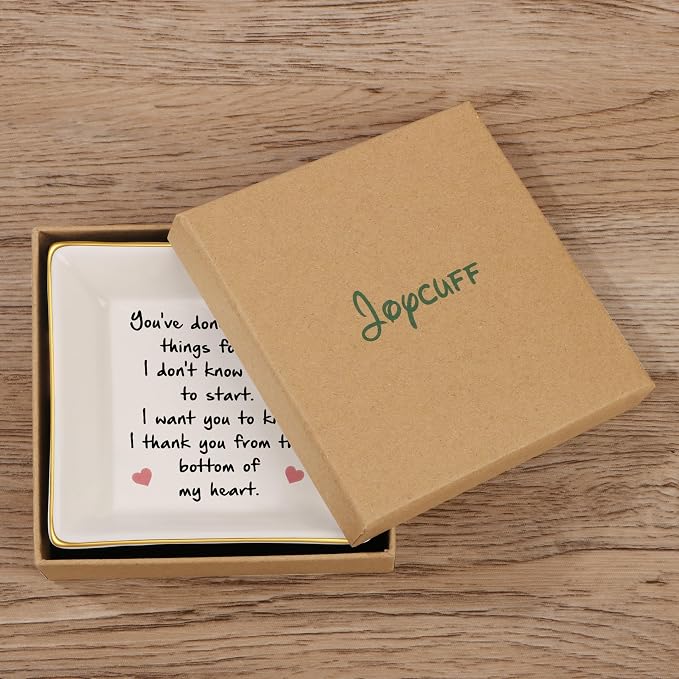 You've don
things fo
I don't know
to start.
I want you to k
I thank you from t
bottom of
my heart.
Joycuff